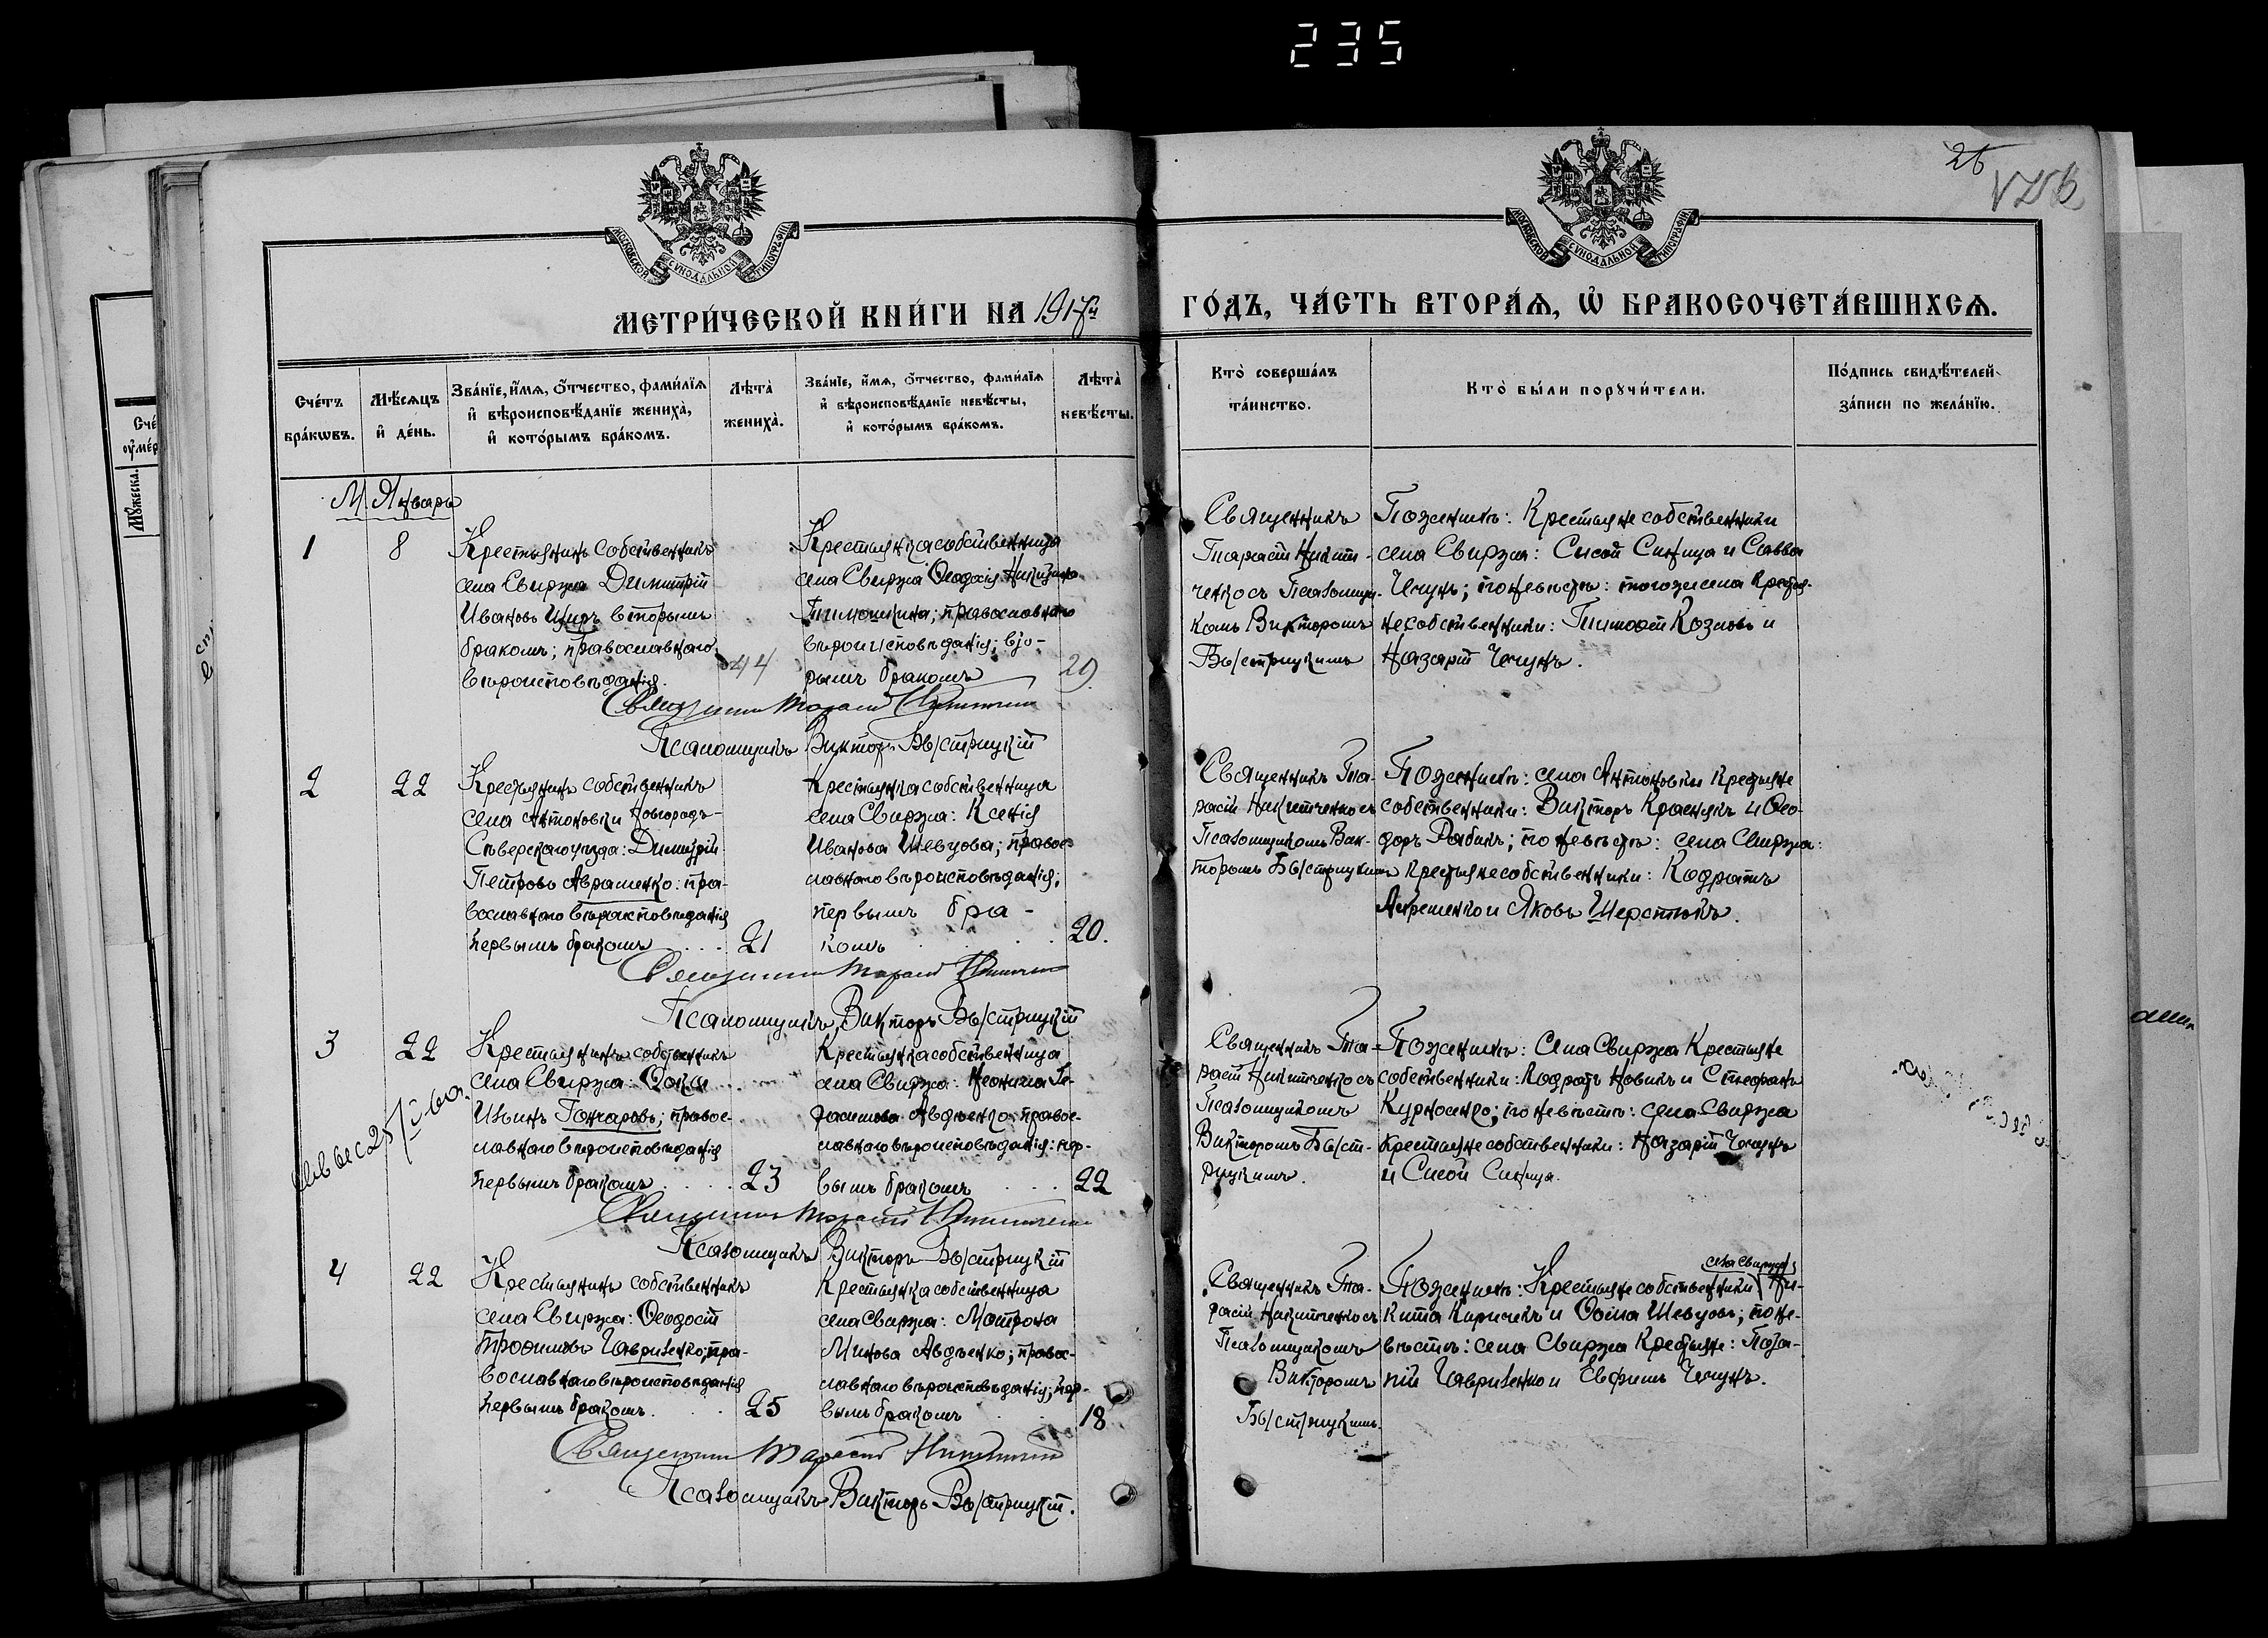 235
26
МОСКОВСКОЙ СѴНОДАЛЬНОЙ ТИПОГРАФІИ
МОСКОВСКОЙ СѴНОДАЛЬНОЙ ТИПОГРАФІИ
МЕТРИ́ЧЕСКОЙ КНИ́ГИ НА 191
ГО́ДЪ, ЧА́СТЬ ВТОРА́Я, Ѡ҆ БРАКОСОЧЕТА́ВШИХСЯ.
Сче́тъ бра́кѡвъ.
Мѣ́сяцъ и҆ де́нь.
Зва́нїе, и҆́мя, ѻ҆́тчество, фами́лїя и҆ вѣроисповѣ́данїе жениха̀, и҆ кото́рымъ бра́комъ.
Лѣта̀ жениха̀.
Зва́нїе, и҆́мя, ѻ҆́тчество, фами́лїя и҆ вѣроисповѣ́данїе невѣ́сты, и҆ кото́рымъ бра́комъ.
Лѣта̀ невѣ́сты.
Кто̀ соверша́лъ та́инство.
Кто̀ бы́ли порꙋчи́тели.
По́дпись свидѣ́телей за́писи по жела́нїю.
М. Январь
1
8
Крестьянинъ собственникъ
села Свиржа Димитрій
Ивановъ Щиръ вторымъ
бракомъ; православнаго
вѣроисповѣданія.
44
Крестьянка собственница
села Свиржа Ѳеодосія
православнаго
вѣроисповѣданія; вто-
рымъ бракомъ
29.
Священникъ
Тарасій Никит-
ченко съ Псаломщи-
комъ Викторомъ
Быстрицкимъ
По женихѣ: Крестьяне собственники
села Свиржа: Сысой Синица и Савва
Чечунъ; по невѣстѣ: того же села крестья-
не собственники: Тимоѳей Козловъ и
Назарій Чечунъ.
Священникъ Тарасій Никитченко
Псаломщикъ Викторъ Быстрицкій
2
22
Крестьянинъ собственникъ
села Антоновки Новгородъ-
Сѣверскаго уѣзда: Димитрій
Петровъ Авраменко: пра-
вославнаго вѣроисповѣданія
первымъ бракомъ
21
Крестьянка собственница
села Свиржа: Ксенія
Иванова Шевцова; правос-
лавнаго вѣроисповѣданія;
первымъ бра-
комъ
20.
Священникъ Та-
расій Никитченко съ
Псаломщикомъ Вик-
торомъ Быстрицкимъ
По женихѣ: села Антоновки крестьяне
собственники: Викторъ Краснякъ и Ѳео-
доръ Рабикъ; по невѣстѣ: села Свиржа:
крестьяне собственники: Кодратъ
и Яковъ Шерстюкъ.
Священникъ Тарасій Никитченко
Псаломщикъ Викторъ Быстрицкій
3
22
Крестьянинъ собственникъ
села Свиржа: Ѳома
Ильинъ Гончаровъ; правос-
лавнаго вѣроисповѣданія
первымъ бракомъ
23
Крестьянка собственница
села Свиржа: Неонила Ге-
расимова Авдѣенко: правос-
лавнаго вѣроисповѣданія: пер-
вымъ бракомъ
22
Священникъ Та-
расій Никитченко съ
Псаломщикомъ
Викторомъ Быст-
рицкимъ.
По женихѣ: Села Свиржа Крестьяне
собственники: Кодратъ Новикъ и Стефанъ
Курносенко; по невѣстѣ: села Свиржа
крестьяне собственники: Назарій Чечунъ
и Сысой Синица.
Священникъ Тарасій Никитченко
Псаломщикъ Викторъ Быстрицкій
4
22
Крестьянинъ собственникъ
села Свиржа: Ѳеодосій
Трофимовъ Гавриленко; пра-
вославнаго вѣроисповѣданія
первымъ бракомъ.
25
Крестьянка собственница
села Свиржа: Матрона
Минова Авдѣенко; правос-
лавнаго вѣроисповѣданія; пер-
вымъ бракомъ
18
Священникъ Та-
расій Никитченко съ
Псаломщикомъ
Викторомъ
Быстрицкимъ.
села Свиржа
По женихѣ: Крестьяне собственники Ни-
кита Киричекъ и Ѳома Шевцовъ; по не-
вѣстѣ: села Свиржа Крестьяне:
Гавриленко и Евфимъ Чечунъ.
Священникъ Тарасій Никитченко
Псаломщикъ Викторъ Быстрицкій.